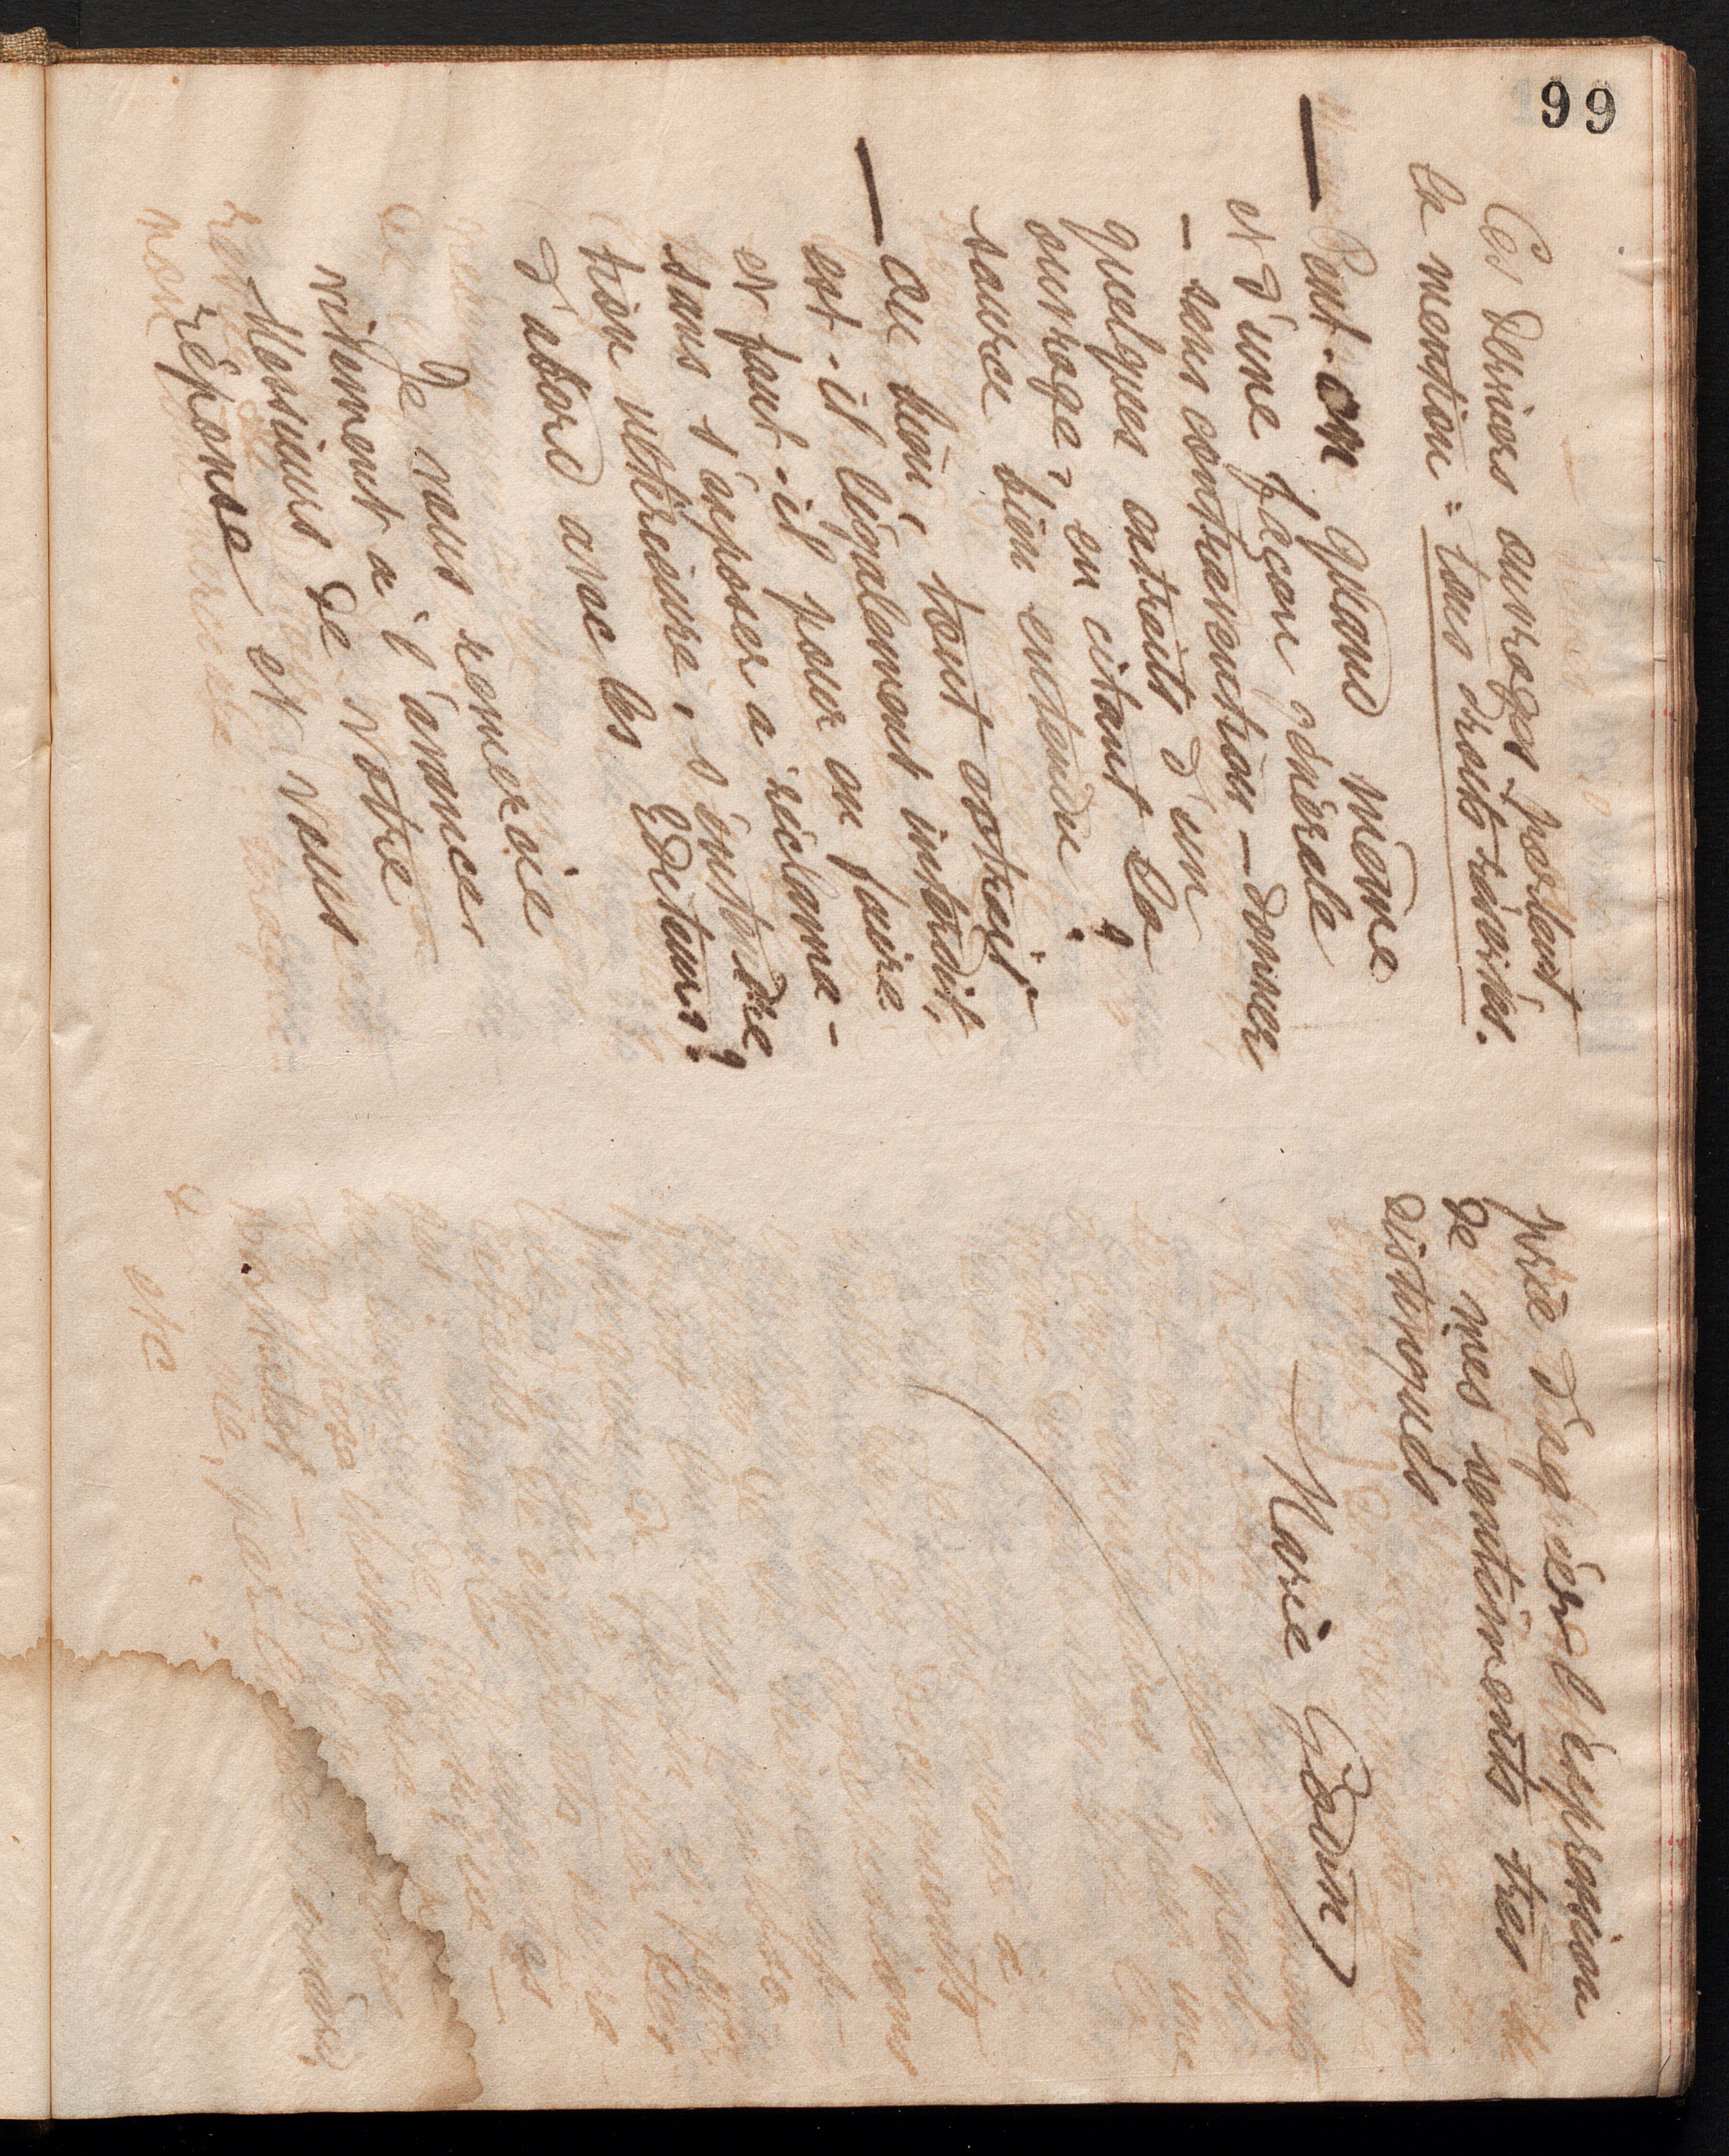 99
Ces derniers ouvrages portent
la mention : tous droits réservés.
— Peut-on quand même
et d'une façon générale
— sans contravention — donner
quelques extraits d'un
ouvrage, en citant la
source bien entendu ?
— Ou bien, tout extrait
est-il légalement interdit,
et faut-il pour en faire
sans s'exposer à réclama-
tion nécessaire, s'entendre
d'abord avec les Editeurs ?
Je vous remercie
vivement à l'avance,
Messieurs de votre
réponse et vous
prie d'agréer l'expression
de mes sentiments très
distingués
Marie Godin